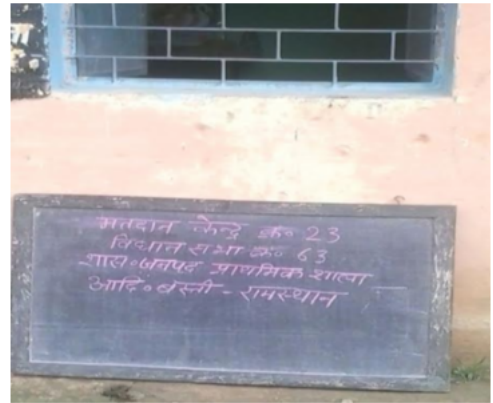 मतदान केन्द्र क्र० 23
विधान सभा क्र० 63
शास० जनपद प्राथमिक शाला
आदि० बस्ती - रामस्थान